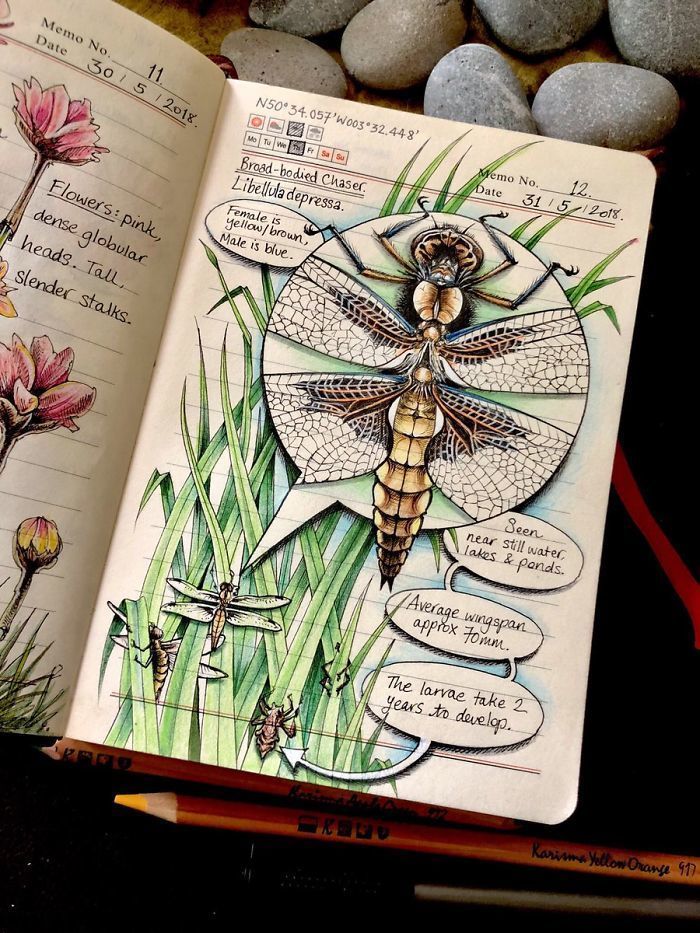 Memo No. 11
Date 30 / 5 / 2018.
Flowers: pink,
dense globular
heads. Tall,
slender stalks.
N50°34.057'W003°32.448'
Mo Tu We Th Fr Sa Su
Memo No. 12.
Date 31 / 5 / 2018.
Broad-bodied Chaser.
Libellula depressa.
Female is
yellow/brown,
Male is blue.
Seen
near still water,
lakes & ponds.
Average wingspan
approx 70mm.
The larvae take 2
years to develop.
Karisma YellowOrange 917